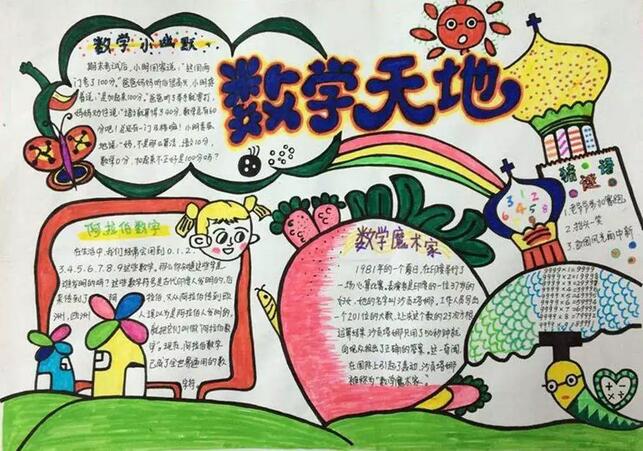 数学小幽默
期末考试后,小明回家说:"这回两
门考了100分,"爸爸妈妈听后很高兴,小明接
着说:"是加起来100分,"爸爸听了举手就要打,
妈妈劝住说:"语文算得了40分,数学总有60
分吧!总还有一门及格嘛!小明委屈
地说:"妈,不是那么算法,语文10分,
数学0分,加起来不正好是100分吗?
数学天地
谜语
1.老爷爷参加赛跑
2.抬头一笑
阿拉伯数字
在生活中,我们经常会用到0.1.2.
3.4.5.6.7.8.9这些数字,那么你知道这些字是
谁发明的吗?这些数字符号是古代印度人发明的,后
来传到了阿拉伯,又从阿拉伯传到欧
洲,欧洲人误以为是阿拉伯人发明的,
就把它们叫做"阿拉伯数
字",现在,阿拉伯数字
已成了全世界通用的数
字符.
数学魔术家
1981年的一个夏日,在印度举行了
一场心算比赛,表演者是印度的一位37岁的
妇女,她的名字叫沙贡塔娜,工作人员写出
一个201位的大数,让求这个数的23次方根
运算结果,沙贡塔娜只用了50秒钟就
向观众报出了正确的答案,这一奇闻,
在国际上引起了轰动,沙贡塔娜
被称为"数学魔术家".
3 1 2 8
6 4 5